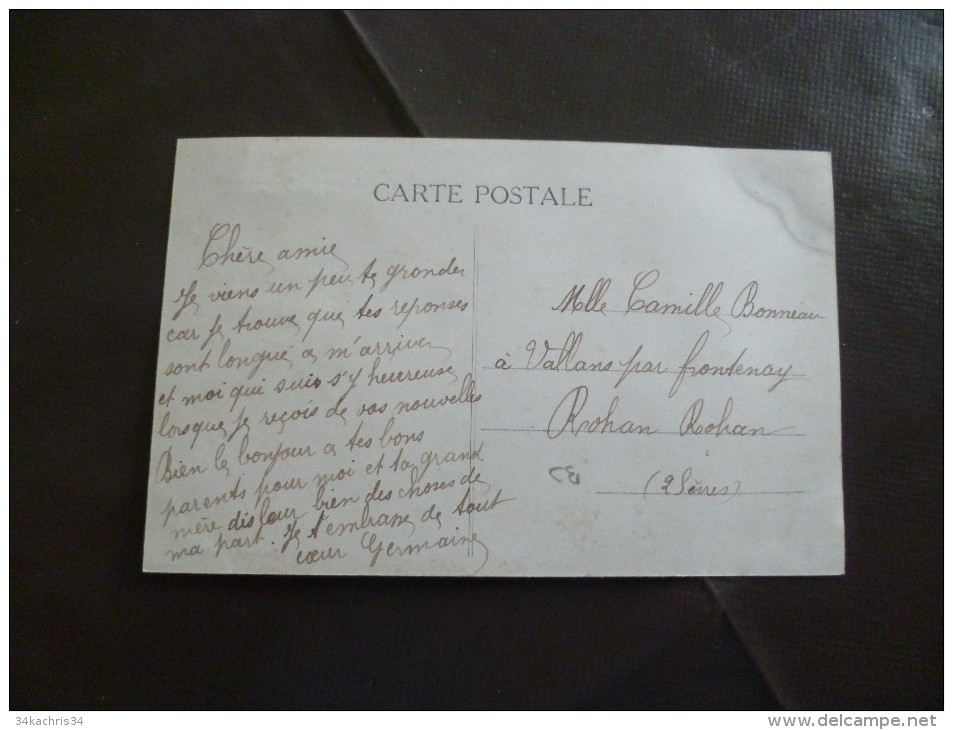 CARTE POSTALE
Chère amie
Je viens un peu te gronder
car Je trouve que tes reponses
sont longue a m'arriver
et moi qui suis s'y heureuse
lorsque Je reçois de vos nouvelles
Bien le bonjour a tes bons
parents pour moi et ta grand
mère dis leur bien des choses de
ma part. Je t'embrasse de tout
cœur Germaine
Mlle Camille Bonneau
à Vallans par frontenay
Rohan Rohan
(2 Sèvres)
34kachris34
www.delcampe.net